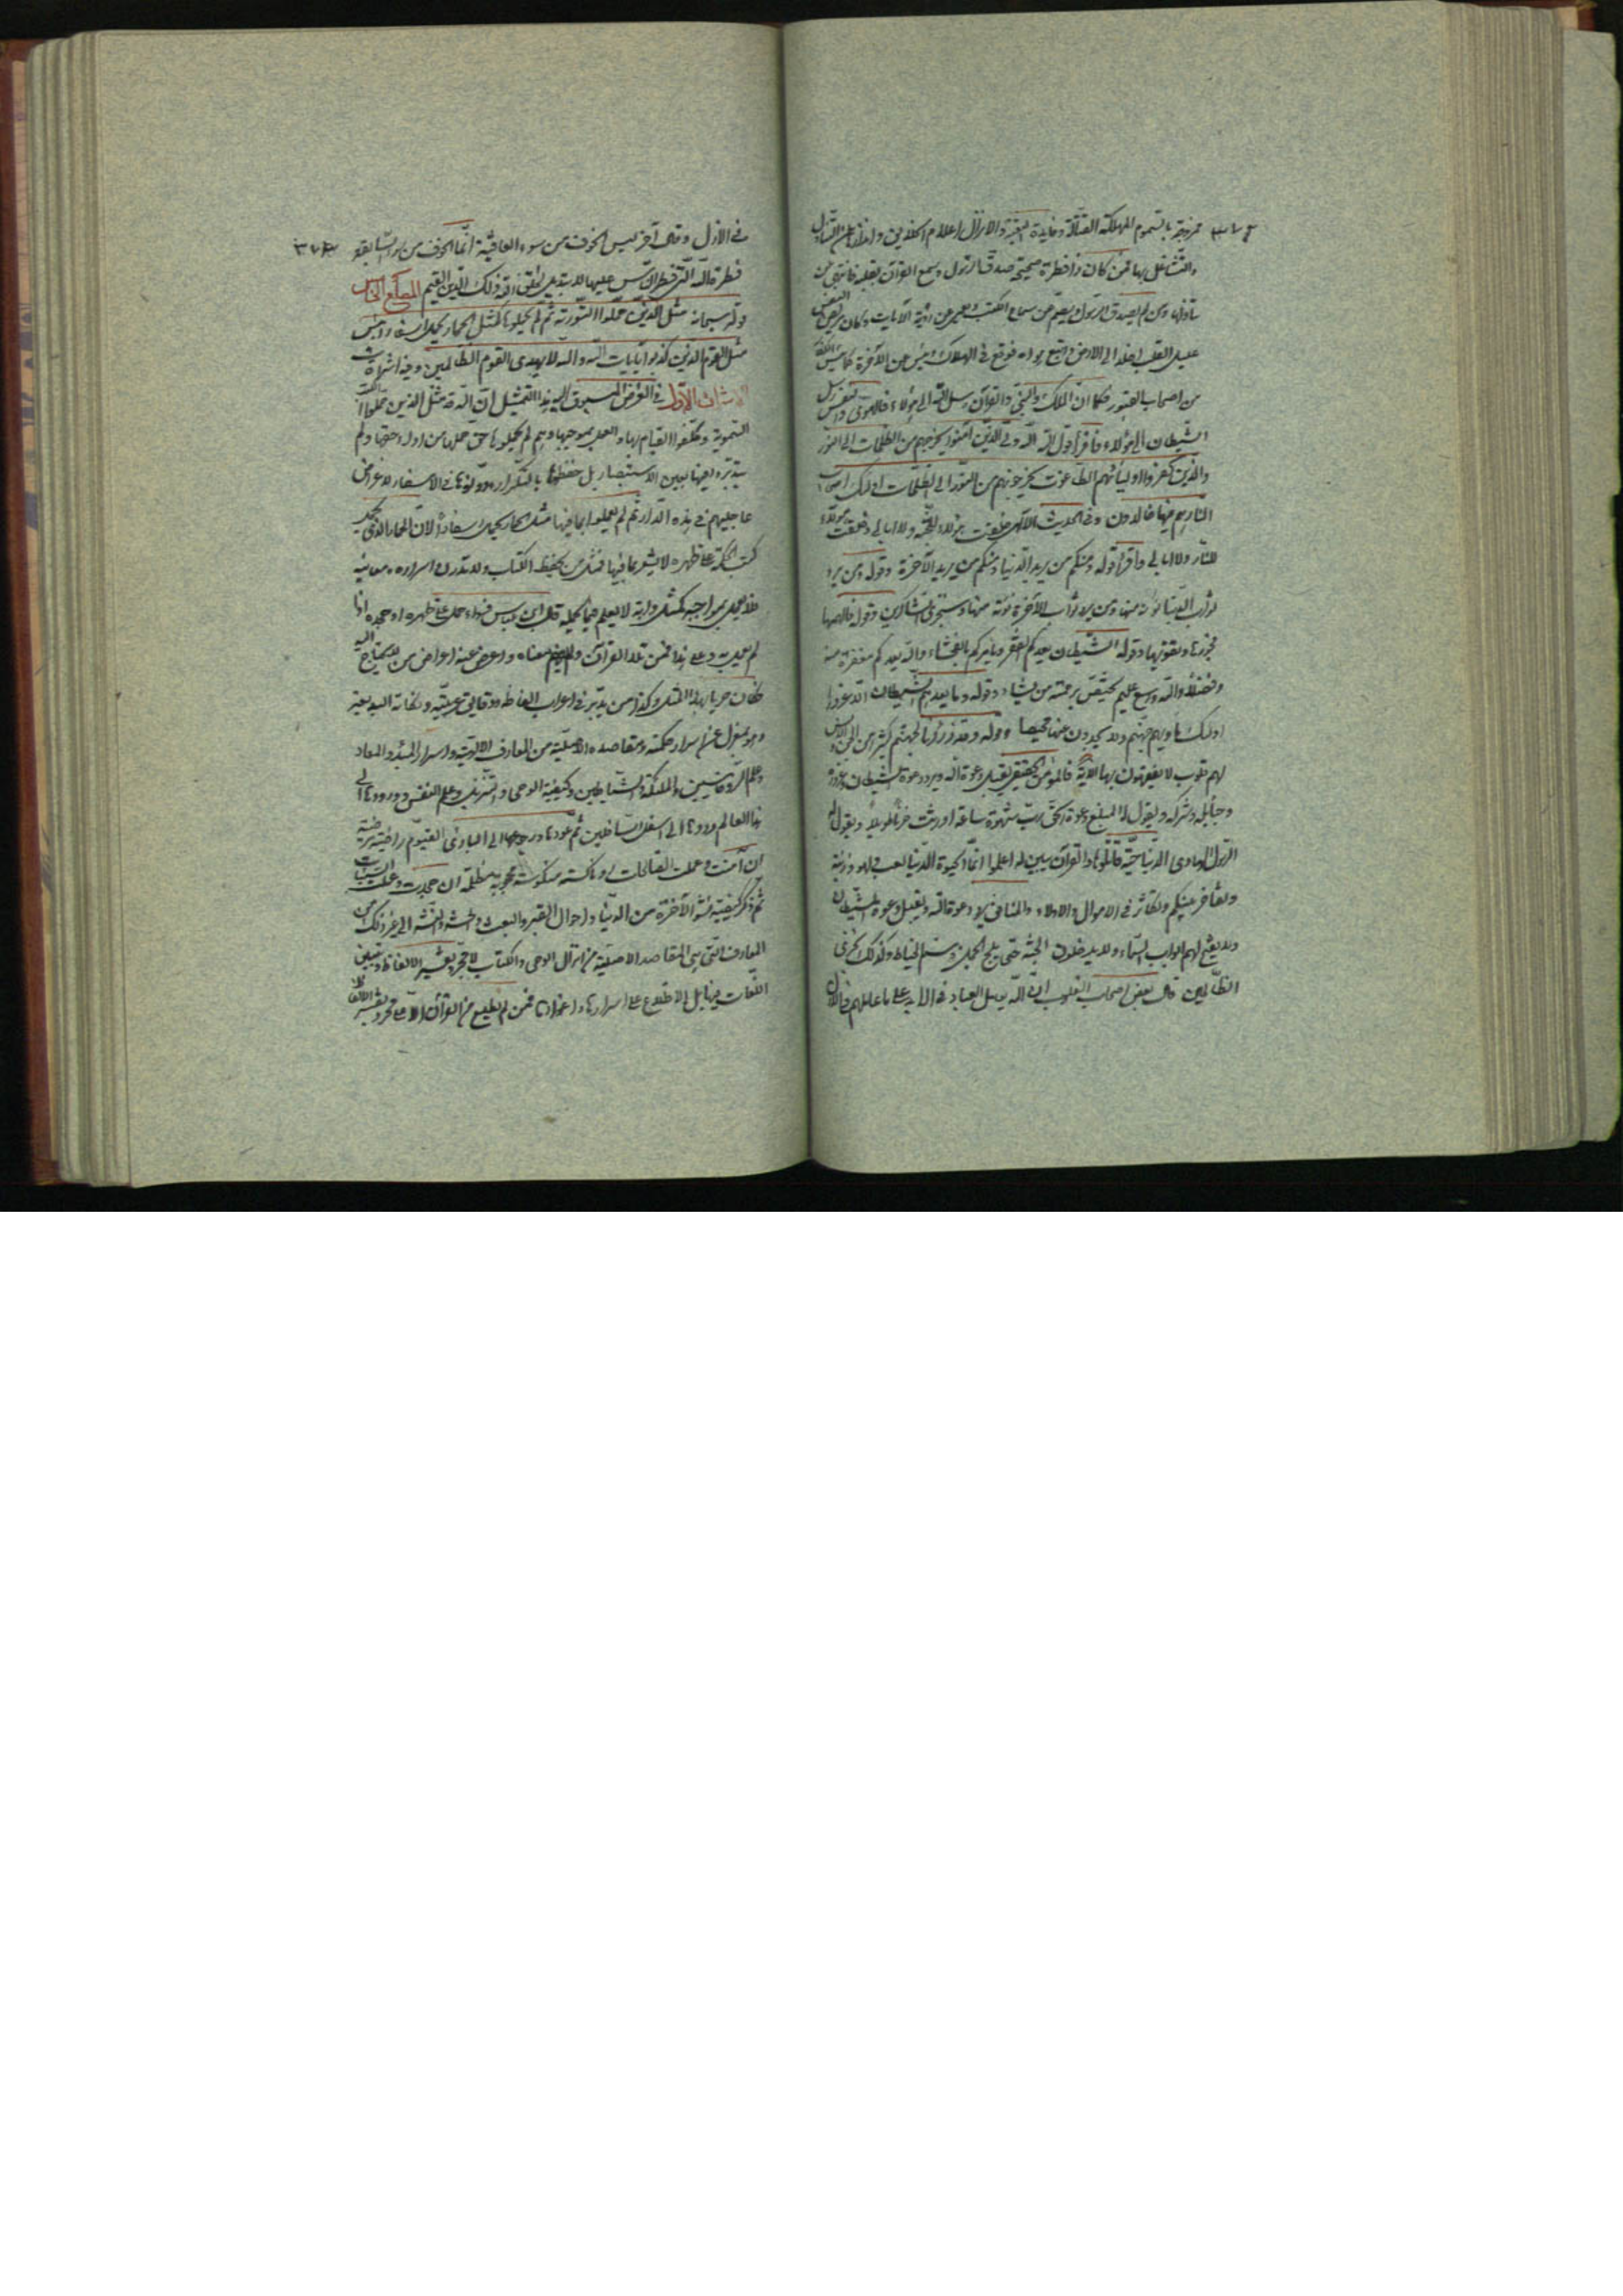 ممزوجة بالسموم المهلكة القتالة وفايدة البعثة والانزال اعلام الخلايق وانذارهم عن التناول
والتشاغل بها فمن كان ذا فطرة صحيحة صدق الرسول وسمع القرآن بقلبه فانتهى عن
تناولها ومن لم يصدق الرسول ويصم عن سماع الكتب ويعمى عن رؤية الآيات وكان مريض النفس
عليل القلب اخلد الى الارض واتبع هواه فوقع في الهلاك ويئس من الآخرة كما يئس الكفار
من اصحاب القبور فكما ان الملك والنبي والقرآن رسل الله الى هؤلاء فالهوى والنفس رسل
الشيطان الى هؤلاء فاقرأ قول الله الله ولي الذين آمنوا يخرجهم من الظلمات الى النور
والذين كفروا اوليائهم الطاغوت يخرجونهم من النور الى الظلمات اولئك اصحاب
النار هم فيها خالدون وفي الحديث الالهي خلقت هؤلاء للجنة ولا ابالي وخلقت هؤلاء
للنار ولا ابالي واقرأ قوله ومنكم من يريد الدنيا ومنكم من يريد الآخرة وقوله ومن يرد
ثواب الدنيا نؤته منها ومن يرد ثواب الآخرة نؤته منها وسنجزي الشاكرين وقوله فالهمها
فجورها وتقويها وقوله الشيطان يعدكم الفقر ويأمركم بالفحشاء والله يعدكم مغفرة منه
وفضلا والله واسع عليم يختص برحمته من يشاء وقوله وما يعدهم الشيطان الا غرورا
اولئك مأويهم جهنم ولا يجدون عنها محيصا وقوله ولقد ذرأنا لجهنم كثيرا من الجن والانس
لهم قلوب لا يفقهون بها الآية فالمؤمن الحقيقي يقبل دعوة الله ويرد دعوة الشيطان وغروره
وحبايله وشركه ويقول له المبلغ دعوة الحق رب شهوة ساعة اورثت حزنا طويلا ويقول له
الرسول الهادي الدنيا حية قتالة والقرآن يبين له اعلموا انما الحيوة الدنيا لعب ولهو وزينة
وتفاخر بينكم وتكاثر في الاموال والاولاد والمنافق يرد دعوة الله ويقبل دعوة الشيطان
ولا يفتح لهم ابواب السماء ولا يدخلون الجنة حتى يلج الجمل في سم الخياط وكذلك نجزي
الظالمين قال بعض اصحاب القلوب ان الله يعامل العباد في الابد على ما عاملهم في الازل
في الازل وقال آخر ليس الخوف من سوء العاقبة انما الخوف من سوء السابقة
فطرة الله التي فطر الناس عليها لا تبديل لخلق الله ذلك الدين القيم المطلع الخامس
قوله سبحانه مثل الذين حملوا التورية ثم لم يحملوها كمثل الحمار يحمل اسفارا بئس
مثل القوم الذين كذبوا بآيات الله والله لا يهدي القوم الظالمين وفيه اشراقات
الاشراق الاول في الغرض المسبوق اليه هذا التمثيل ان الله قد مثل الذين حملوا الكتب
السموية وكلفوا القيام بها والعمل بموجبها وهم لم يحملوها حق حملها من اداء حقها ولم
يتدبروا فيها بعين الاستبصار بل حفظها بالتكرار ودونوها في الاسفار لاغراض
عاجليهم في هذه الدار ثم لم يعملوا بما فيها مثل الحمار يحمل اسفارا لان الحمار الذي يحمل
كتب الحكمة على ظهره لا يشعر بما فيها فمثل من يحفظ الكتاب ولا يتدرب اسراره ومعانيه
فلا يعمل بمواجبه كمثل دابة لا يعلم فيما يحمله قال ابن عباس فسواء حمل على ظهره او جحده اذا
لم يعمل به وعلى هذا فمن تلا القرآن ولم يفهم معناه واعرض عنه اعراض من لا يحتاج اليه
كان حريا بهذا المثل وكذا من يتدبر في اعراب الفاظه ودقايق عربيته ونكاته البديعية
وهو بمعزل عن اسرار حكمته ومقاصده الاصلية من المعارف الالهية واسرار المبدء والمعاد
وعلم الروحانيين والملائكة والشياطين وكيفية الوحي والتنزيل وعلم النفس وورودها الى
هذا العالم وردها الى اسفل السافلين ثم عودها ورجوعها الى المبادئ القيوم راضية مرضية
ان آمنت وعملت الصالحات او ناكسة منكوسة محجوبة مظلمة ان جحدت وعملت السيئات
ثم ذكر كيفية نشو الآخرة من الدنيا واحوال القبر والبعث والحشر والنشر الى غير ذلك من
المعارف التي هي المقاصد الاصلية من انزال الوحي والكتاب لا مجرد تفسير الالفاظ وتبيين
اللغات من غير الاطلاع على اسرارها واغوارها فمن لم يطلع من القرآن الا على مجرد تفسير الالفاظ